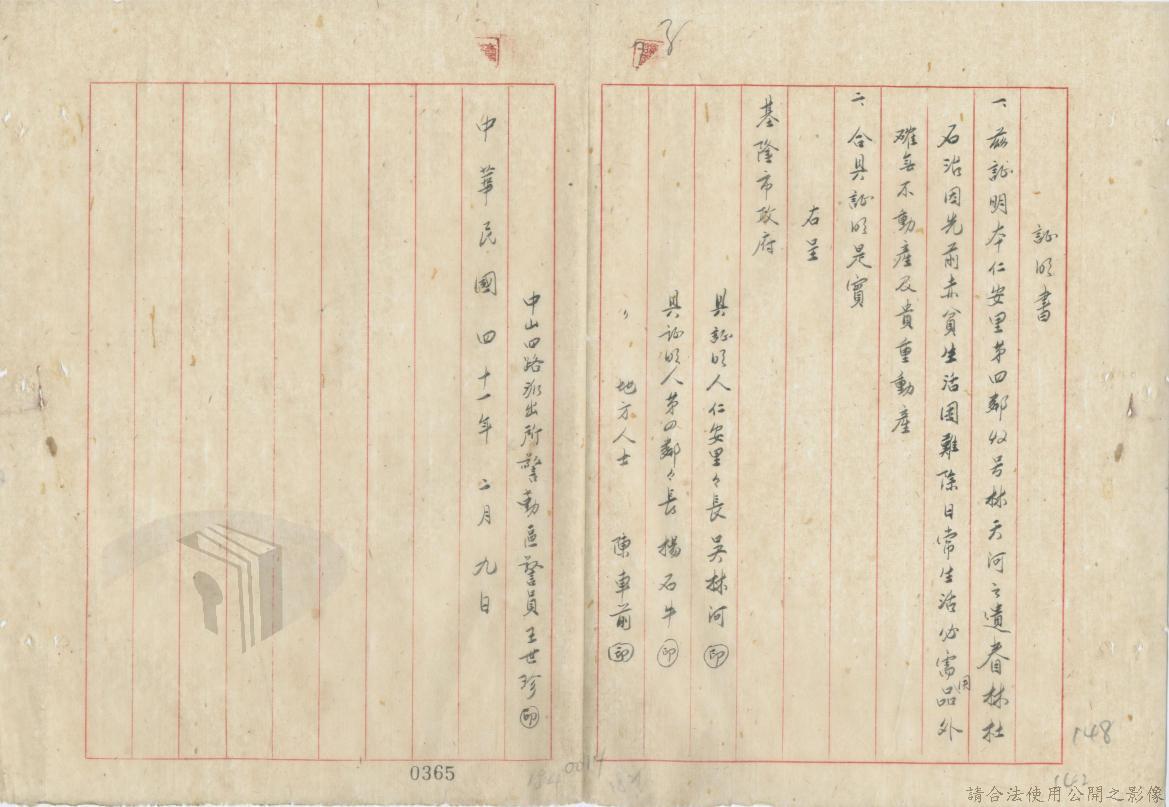 証明書
一、茲証明本仁安里第四鄰 号林天河之遺眷林杜
石治因先前赤貧生活困難除日常生活必需用品外
確無不動產及貴重動產
二、合具証明是實
右呈
基隆市政府
具証明人仁安里々長 吳林河 印
具証明人第四鄰々長 楊石牛 印
〃 地方人士 陳車前 印
中山四路派出所警勤區警員王世珍 印
中華民國四十一年二月九日
148
0365
0014
請合法使用公開之影像